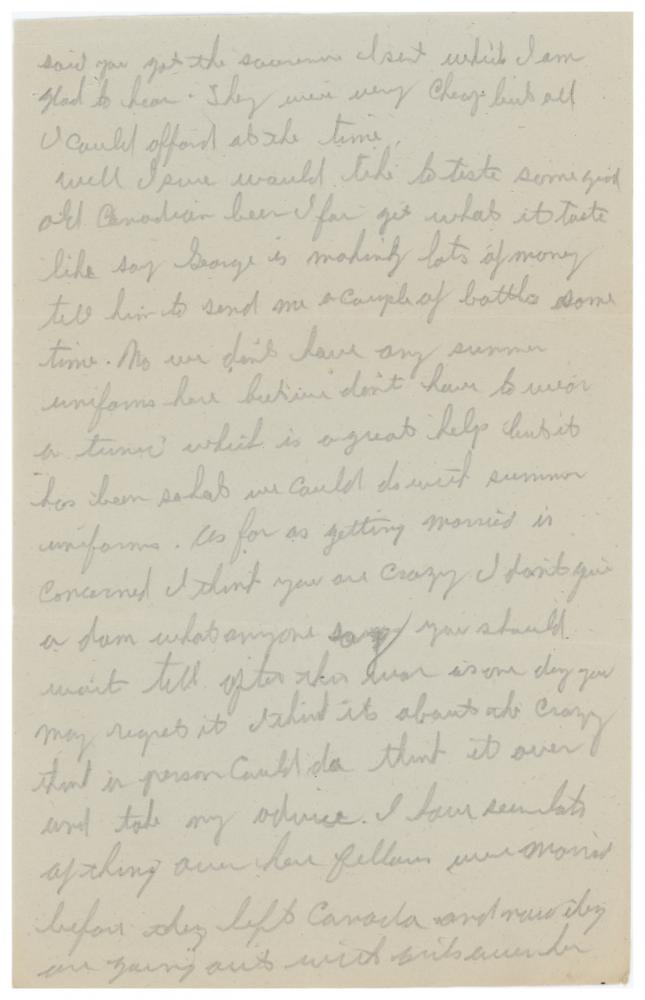 said you got the souvenirs I sent which I am
glad to hear. They were very cheap but all
I could afford at the time.
well I sure would like to taste some good
old Canadian beer I for get what it taste
like say George is making lots of money
tell him to send me a couple of bottles some
time. No we don't have any summer
uniforms here but we don't have to wear
a tunic which is a great help but it
has been so hot we could do with summer
uniforms. As far as getting married is
concerned I think you are crazy I don't give
a dam what anyone say you should
wait till after this war is one day you
may regret it I think it's about the crazy
thing a person could do think it over
and take my advice. I have seen lots
of thing over here fellows were married
before they left Canada and now they
are going out with girls over here